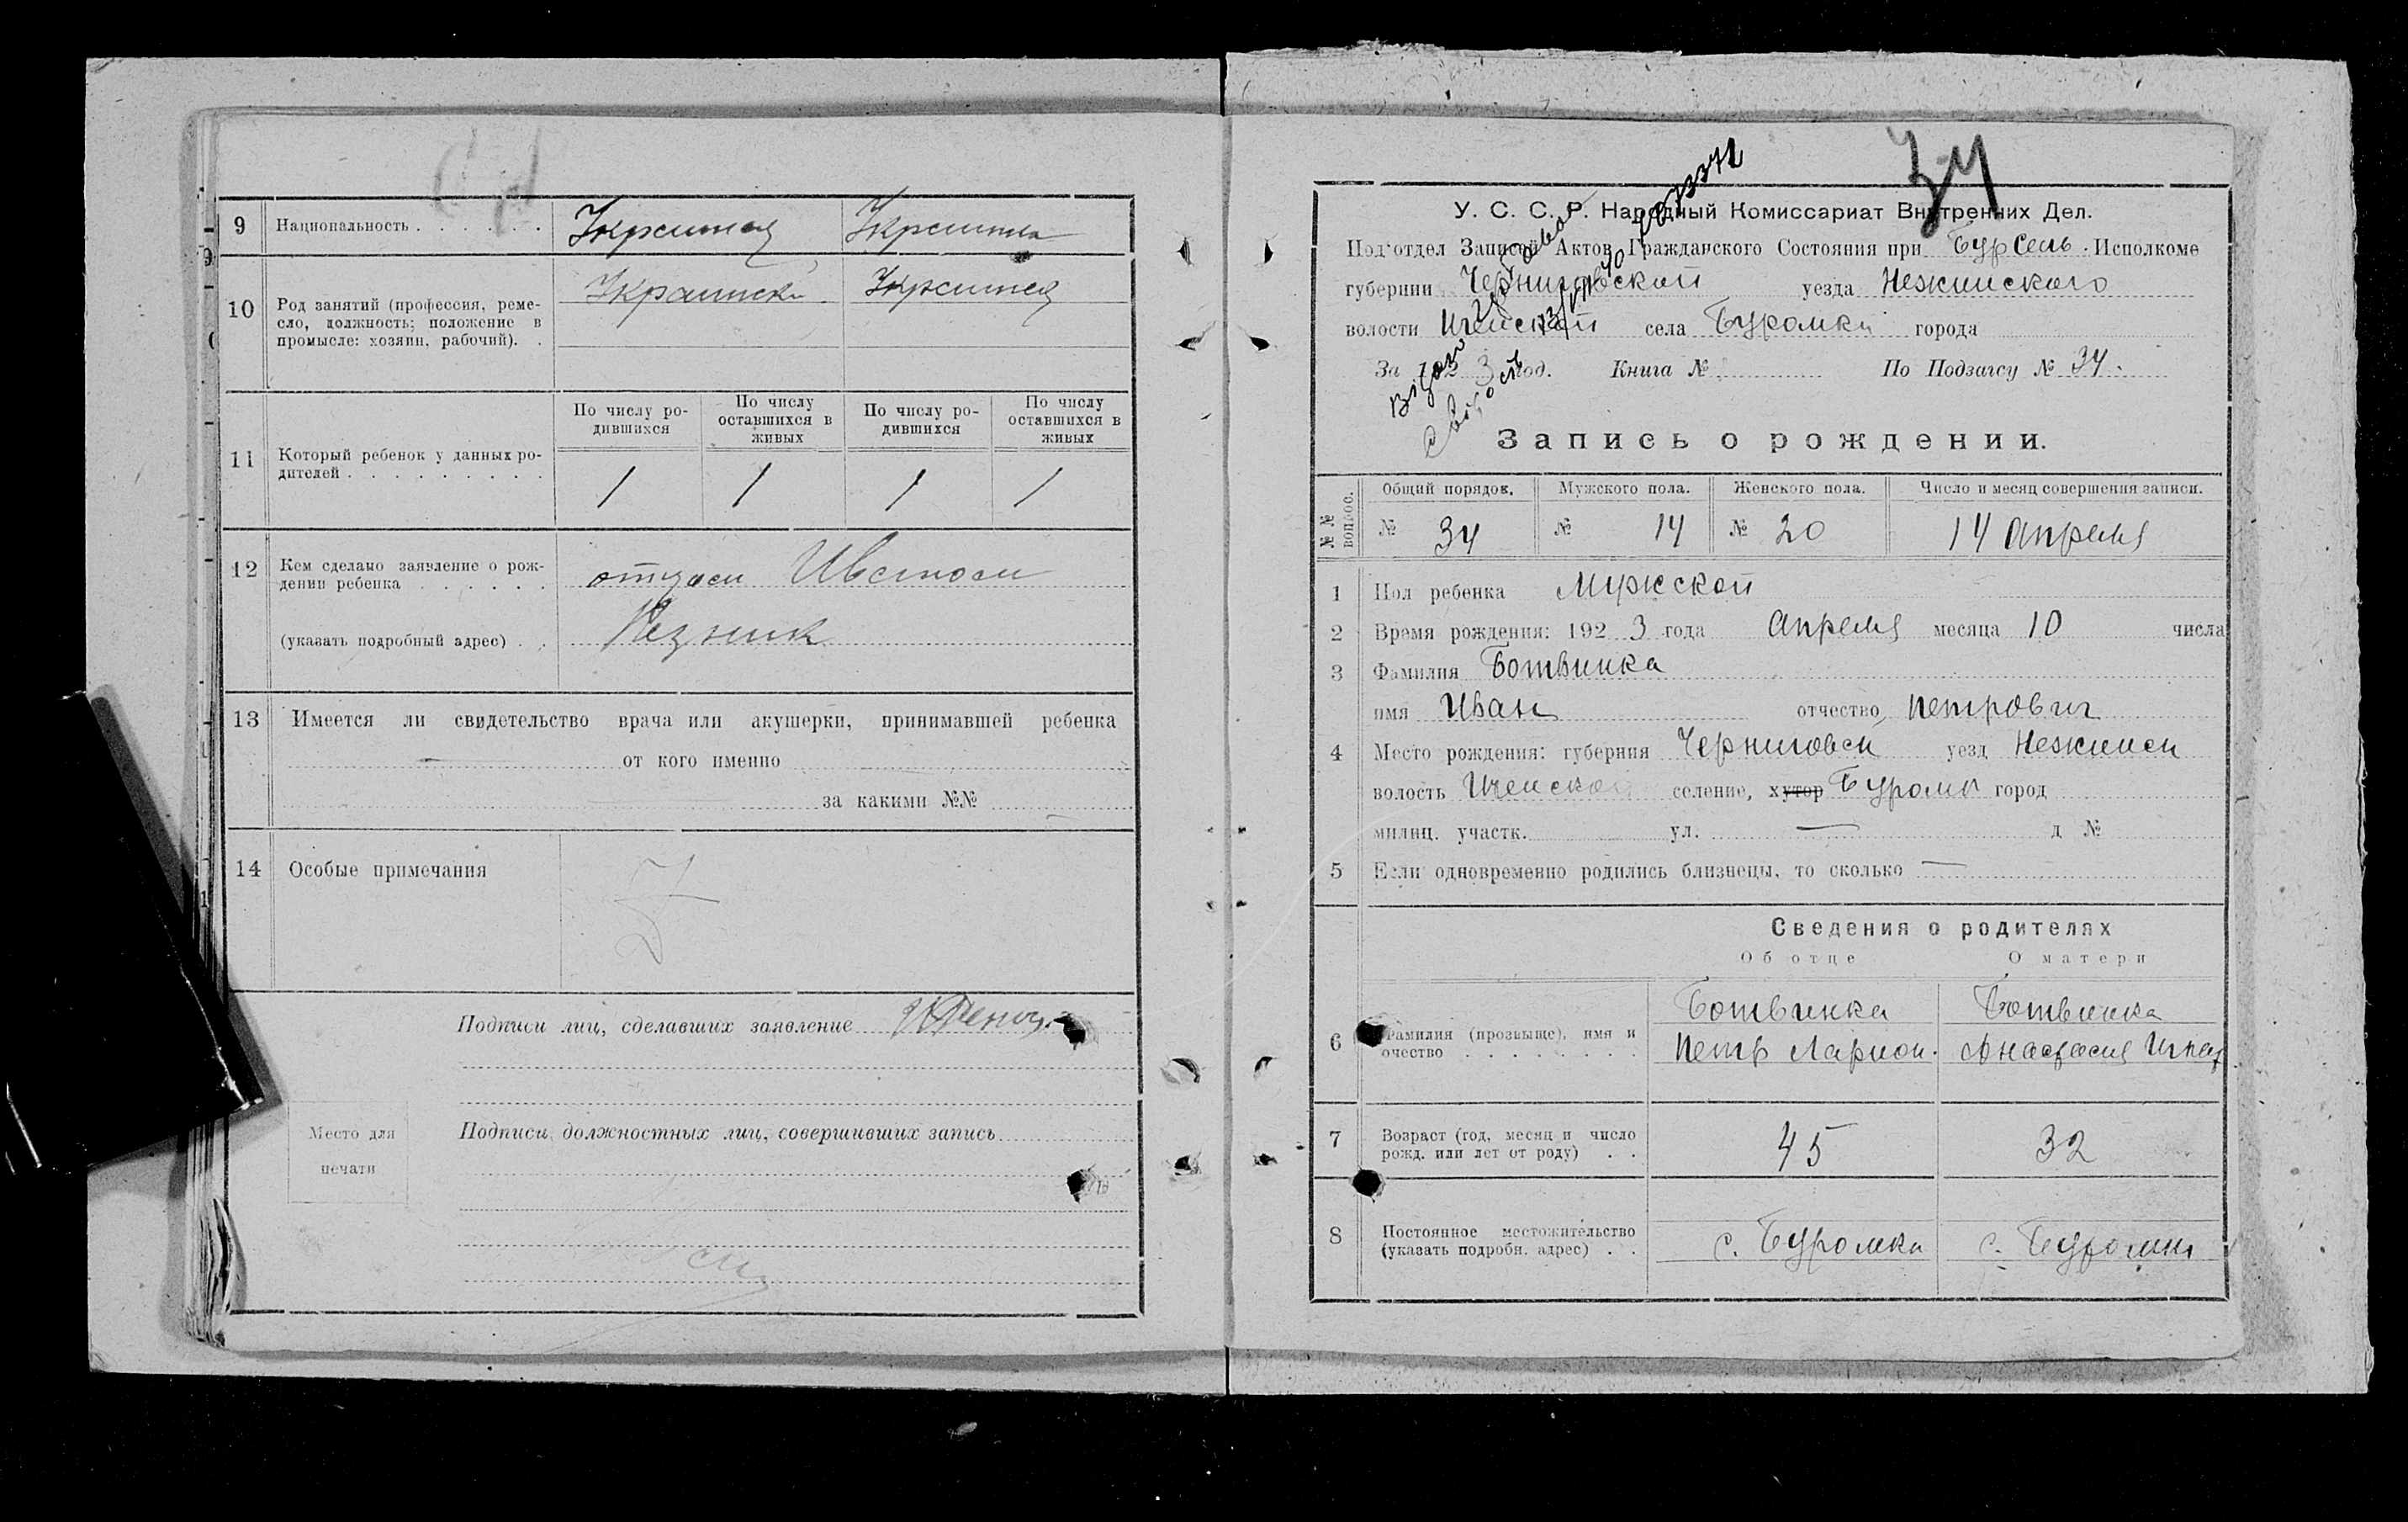 9 Национальность . . . . . .
10 Род занятий (профессия, реме-
сло, должность; положение в
промысле: хозяин, рабочий). .
По числу ро-
дившихся
По числу
оставшихся в
живых
По числу ро-
дившихся
По числу
оставшихся в
живых
11 Который ребенок у данных ро-
дителей . . . . . . . . .
1 1 1 1
12 Кем сделано заявление о рож-
дении ребенка . . . . . .
отцом
(указать подробный адрес) . .
13 Имеется ли свидетельство врача или акушерки, принимавшей ребенка
— от кого именно
за какими №№
14 Особые примечания
Подписи лиц, сделавших заявление
Подписи должностных лиц, совершивших запись
Место для
печати
34
У. С. С. Р. Народный Комиссариат Внутренних Дел.
Подотдел Записей Актов Гражданского Состояния при БурСель. Исполкоме
губернии Черниговской уезда Нежинского
волости Иченской села Буромки города
За 192 3 год. Книга № По Подзагсу № 34.
Запись о рождении.
№ № вопрос.
Общий порядок. Мужского пола. Женского пола. Число и месяц совершения записи.
№ 34 № 14 № 20 14 апреля
1 Пол ребенка Мужской
2 Время рождения: 192 3 года Апреля месяца 10 числа
3 Фамилия Ботвинка
имя Иван отчество Петрович
4 Место рождения: губерния Черниговск уезд Нежинск
волость Иченской селение, хутор Буромк город
милиц. участк. ул. — д №
5 Если одновременно родились близнецы, то сколько —
Сведения о родителях
Об отце О матери
6 Фамилия (прозвыще), имя и
очество . . . . . . . .
Ботвинка Ботвинка
Петр Ларион. Анастасия Игнат
7 Возраст (год, месяц и число
рожд. или лет от роду) . .
45 32
8 Постоянное местожительство
(указать подробн. адрес) . .
с. Буромка с. Буромка